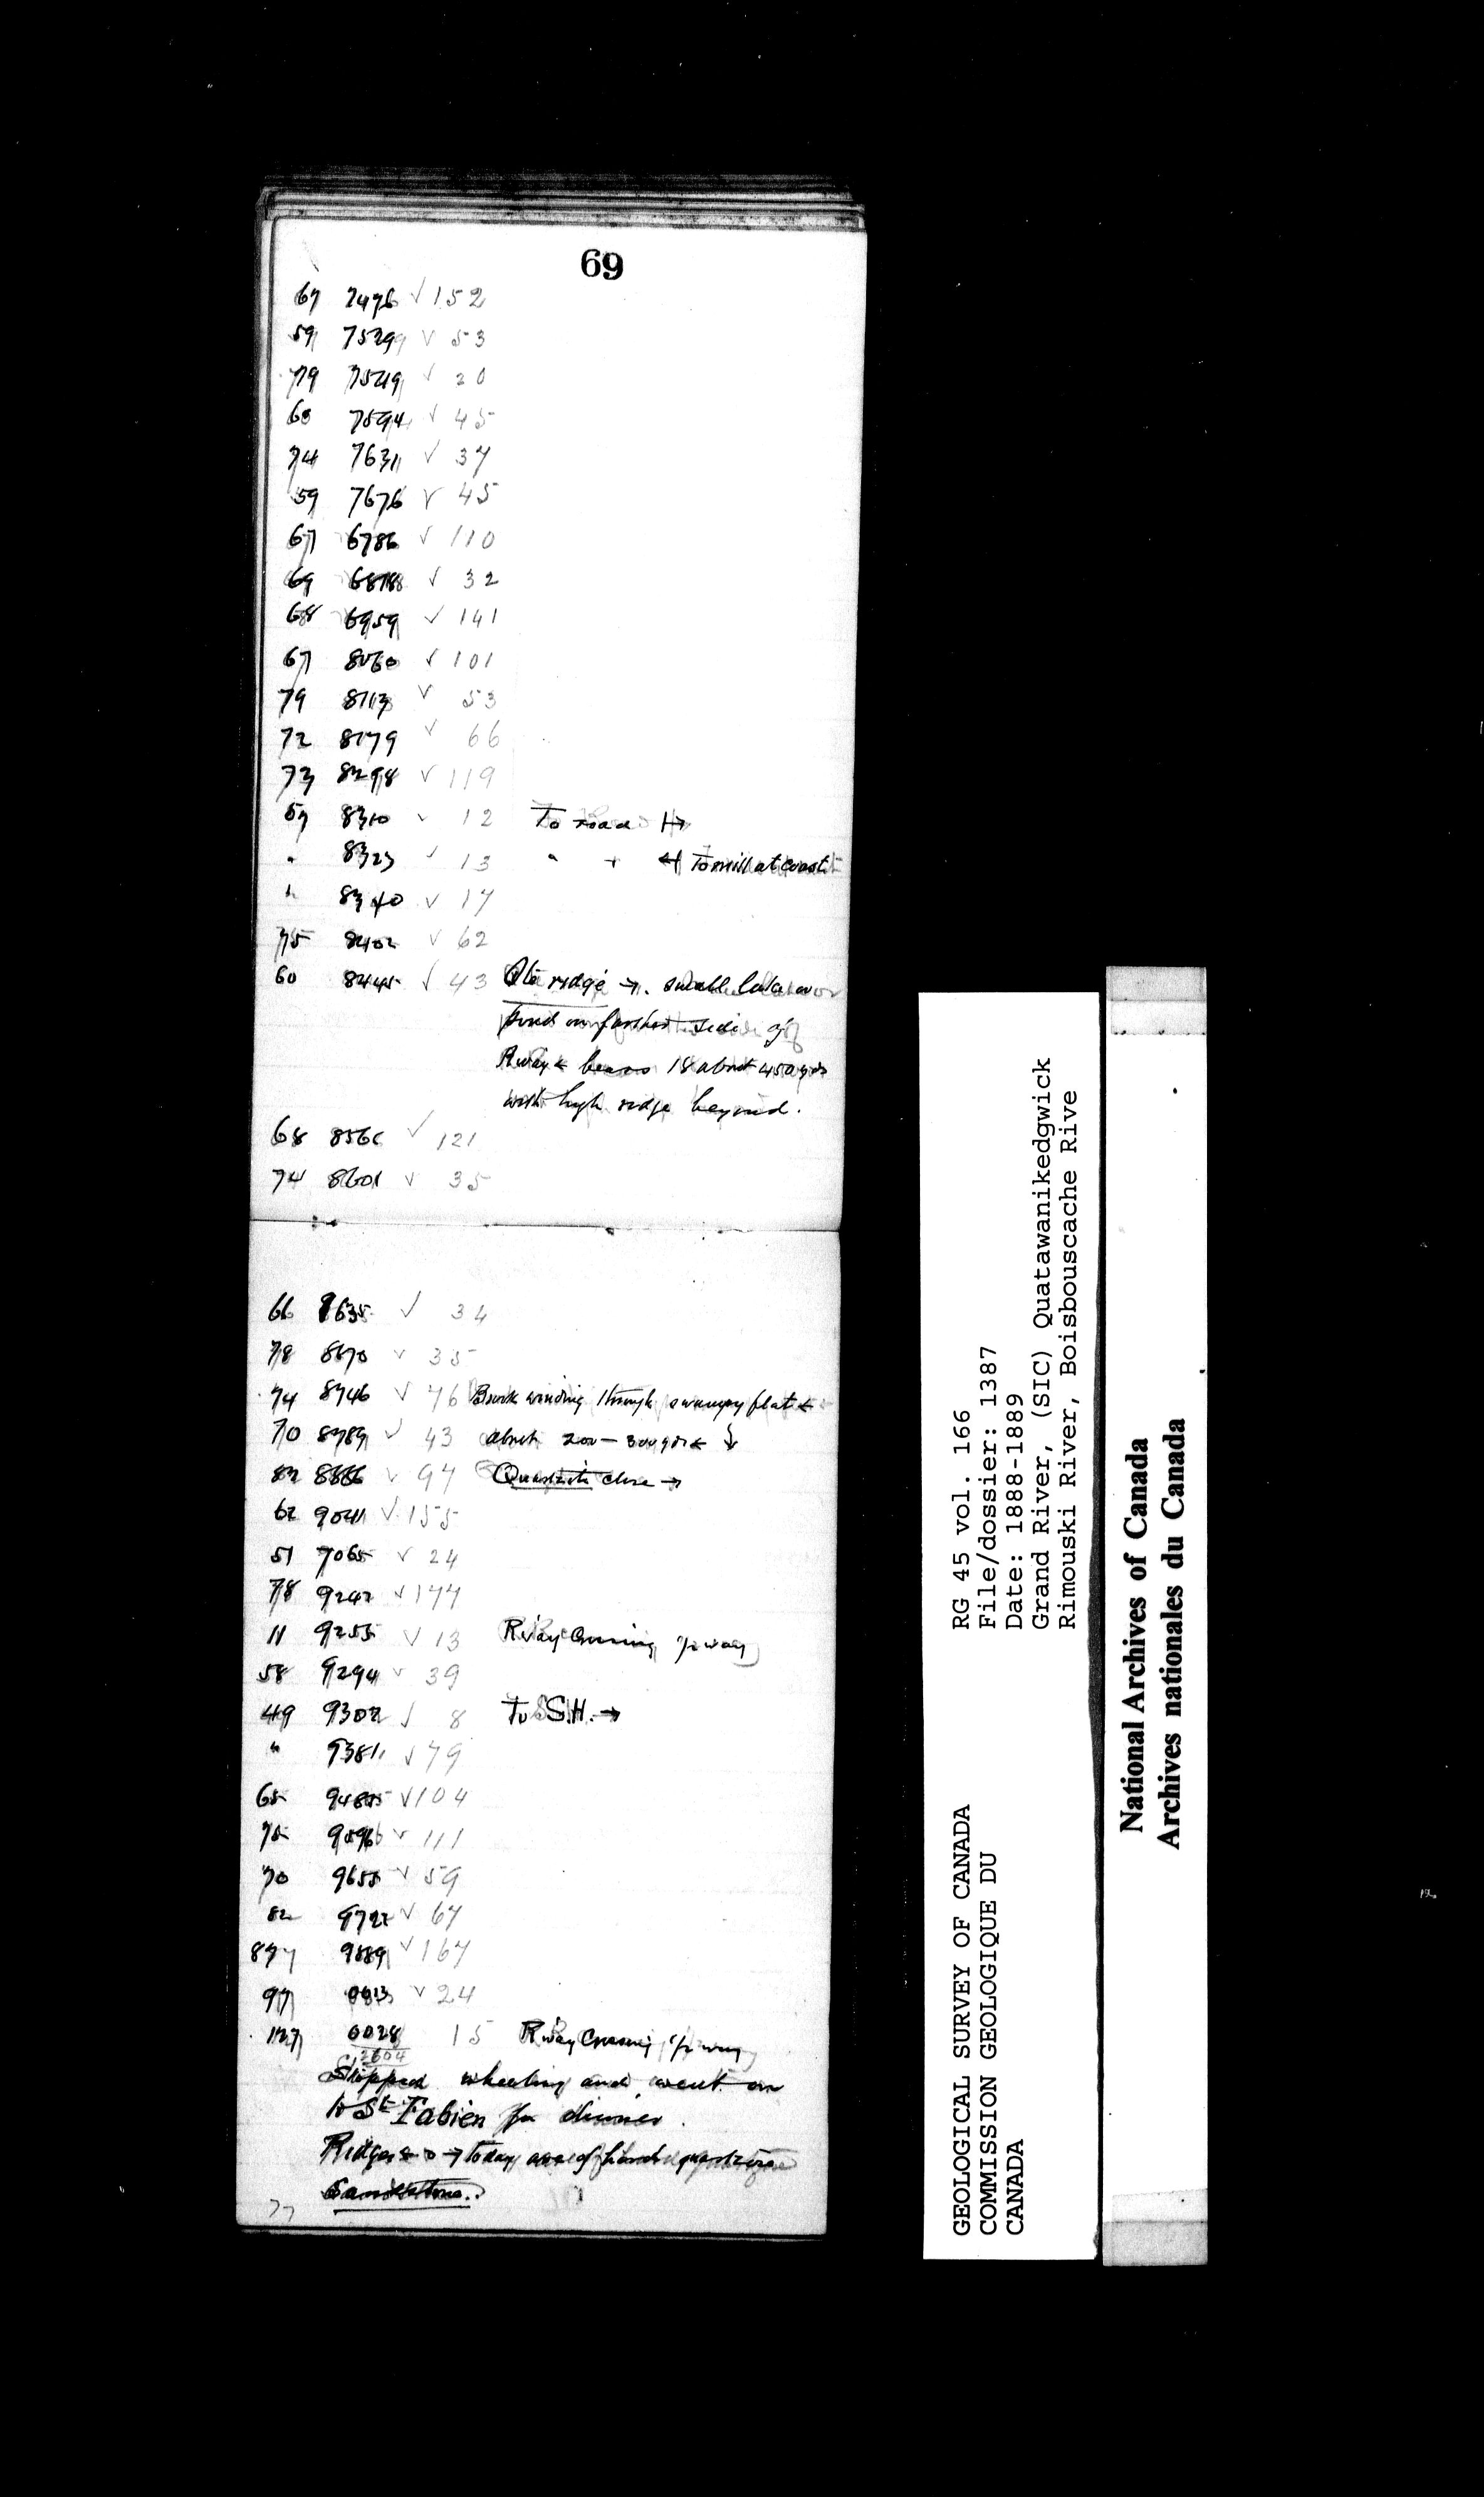 69
67 7476 √ 152
59 7529 √ 53
79 7549 √ 20
60 7594 √ 45
74 7631 √ 37
59 7676 √ 45
67 6786 √ 110
69 6818 √ 32
68 6959 √ 141
67 8060 √ 101
79 8113 √ 53
72 8179 √ 66
73 8298 √ 119
57 8310 √ 12 To road →
" 8323 √ 13 " + ← To mill at coast
" 8340 √ 17
75 8402 √ 62
60 8445 √ 43 Qte ridge →. small lake or
pond on farther side of
Rway ← bears 18 about 450 yds
with high ridge beyond.
68 8566 √ 121
74 8601 √ 35
66 8635 √ 34
78 8670 √ 35
74 8746 √ 76 Brook winding through swampy flat ←
70 8789 √ 43 about 200 – 300 yds ← ↓
82 8886 √ 97 Quartzite close →
62 9041 √ 155
51 7065 √ 24
78 9242 √ 177
11 9255 √ 13 R'way Crossing ½ way
58 9294 √ 39
49 9302 √ 8 To S.H. →
" 9381 √ 79
65 9485 √ 104
75 9596 √ 111
70 9655 √ 59
82 9722 √ 67
87 9889 √ 167
97 0013 √ 24
127 0028 15 R'way Crossing ½ way
2604
Stopped wheeling and went on
to St Fabien for dinner.
Ridges ← → today are of hard quartzose
Sandstone.
77
RG 45 vol. 166
File/dossier: 1387
Date: 1888-1889
Grand River, (SIC) Quatawanikedgwick
Rimouski River, Boisbouscache Rive
GEOLOGICAL SURVEY OF CANADA
COMMISSION GEOLOGIQUE DU
CANADA
National Archives of Canada
Archives nationales du Canada